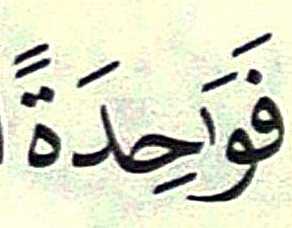 فَوَاحِدَةً